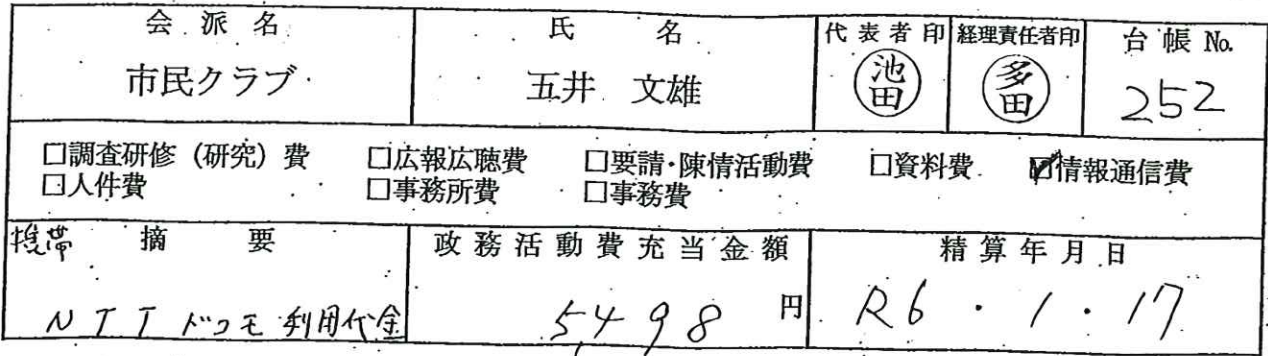 会派名 氏名 代表者印 経理責任者印 台帳 No.
市民クラブ 五井 文雄 池田 多田 252
□調査研修（研究）費 □広報広聴費 □要請・陳情活動費 □資料費 ☑情報通信費
□人件費 □事務所費 □事務費
携帯 摘要 政務活動費充当金額 精算年月日
NTTドコモ利用代金 5,498 円 R6・1・17